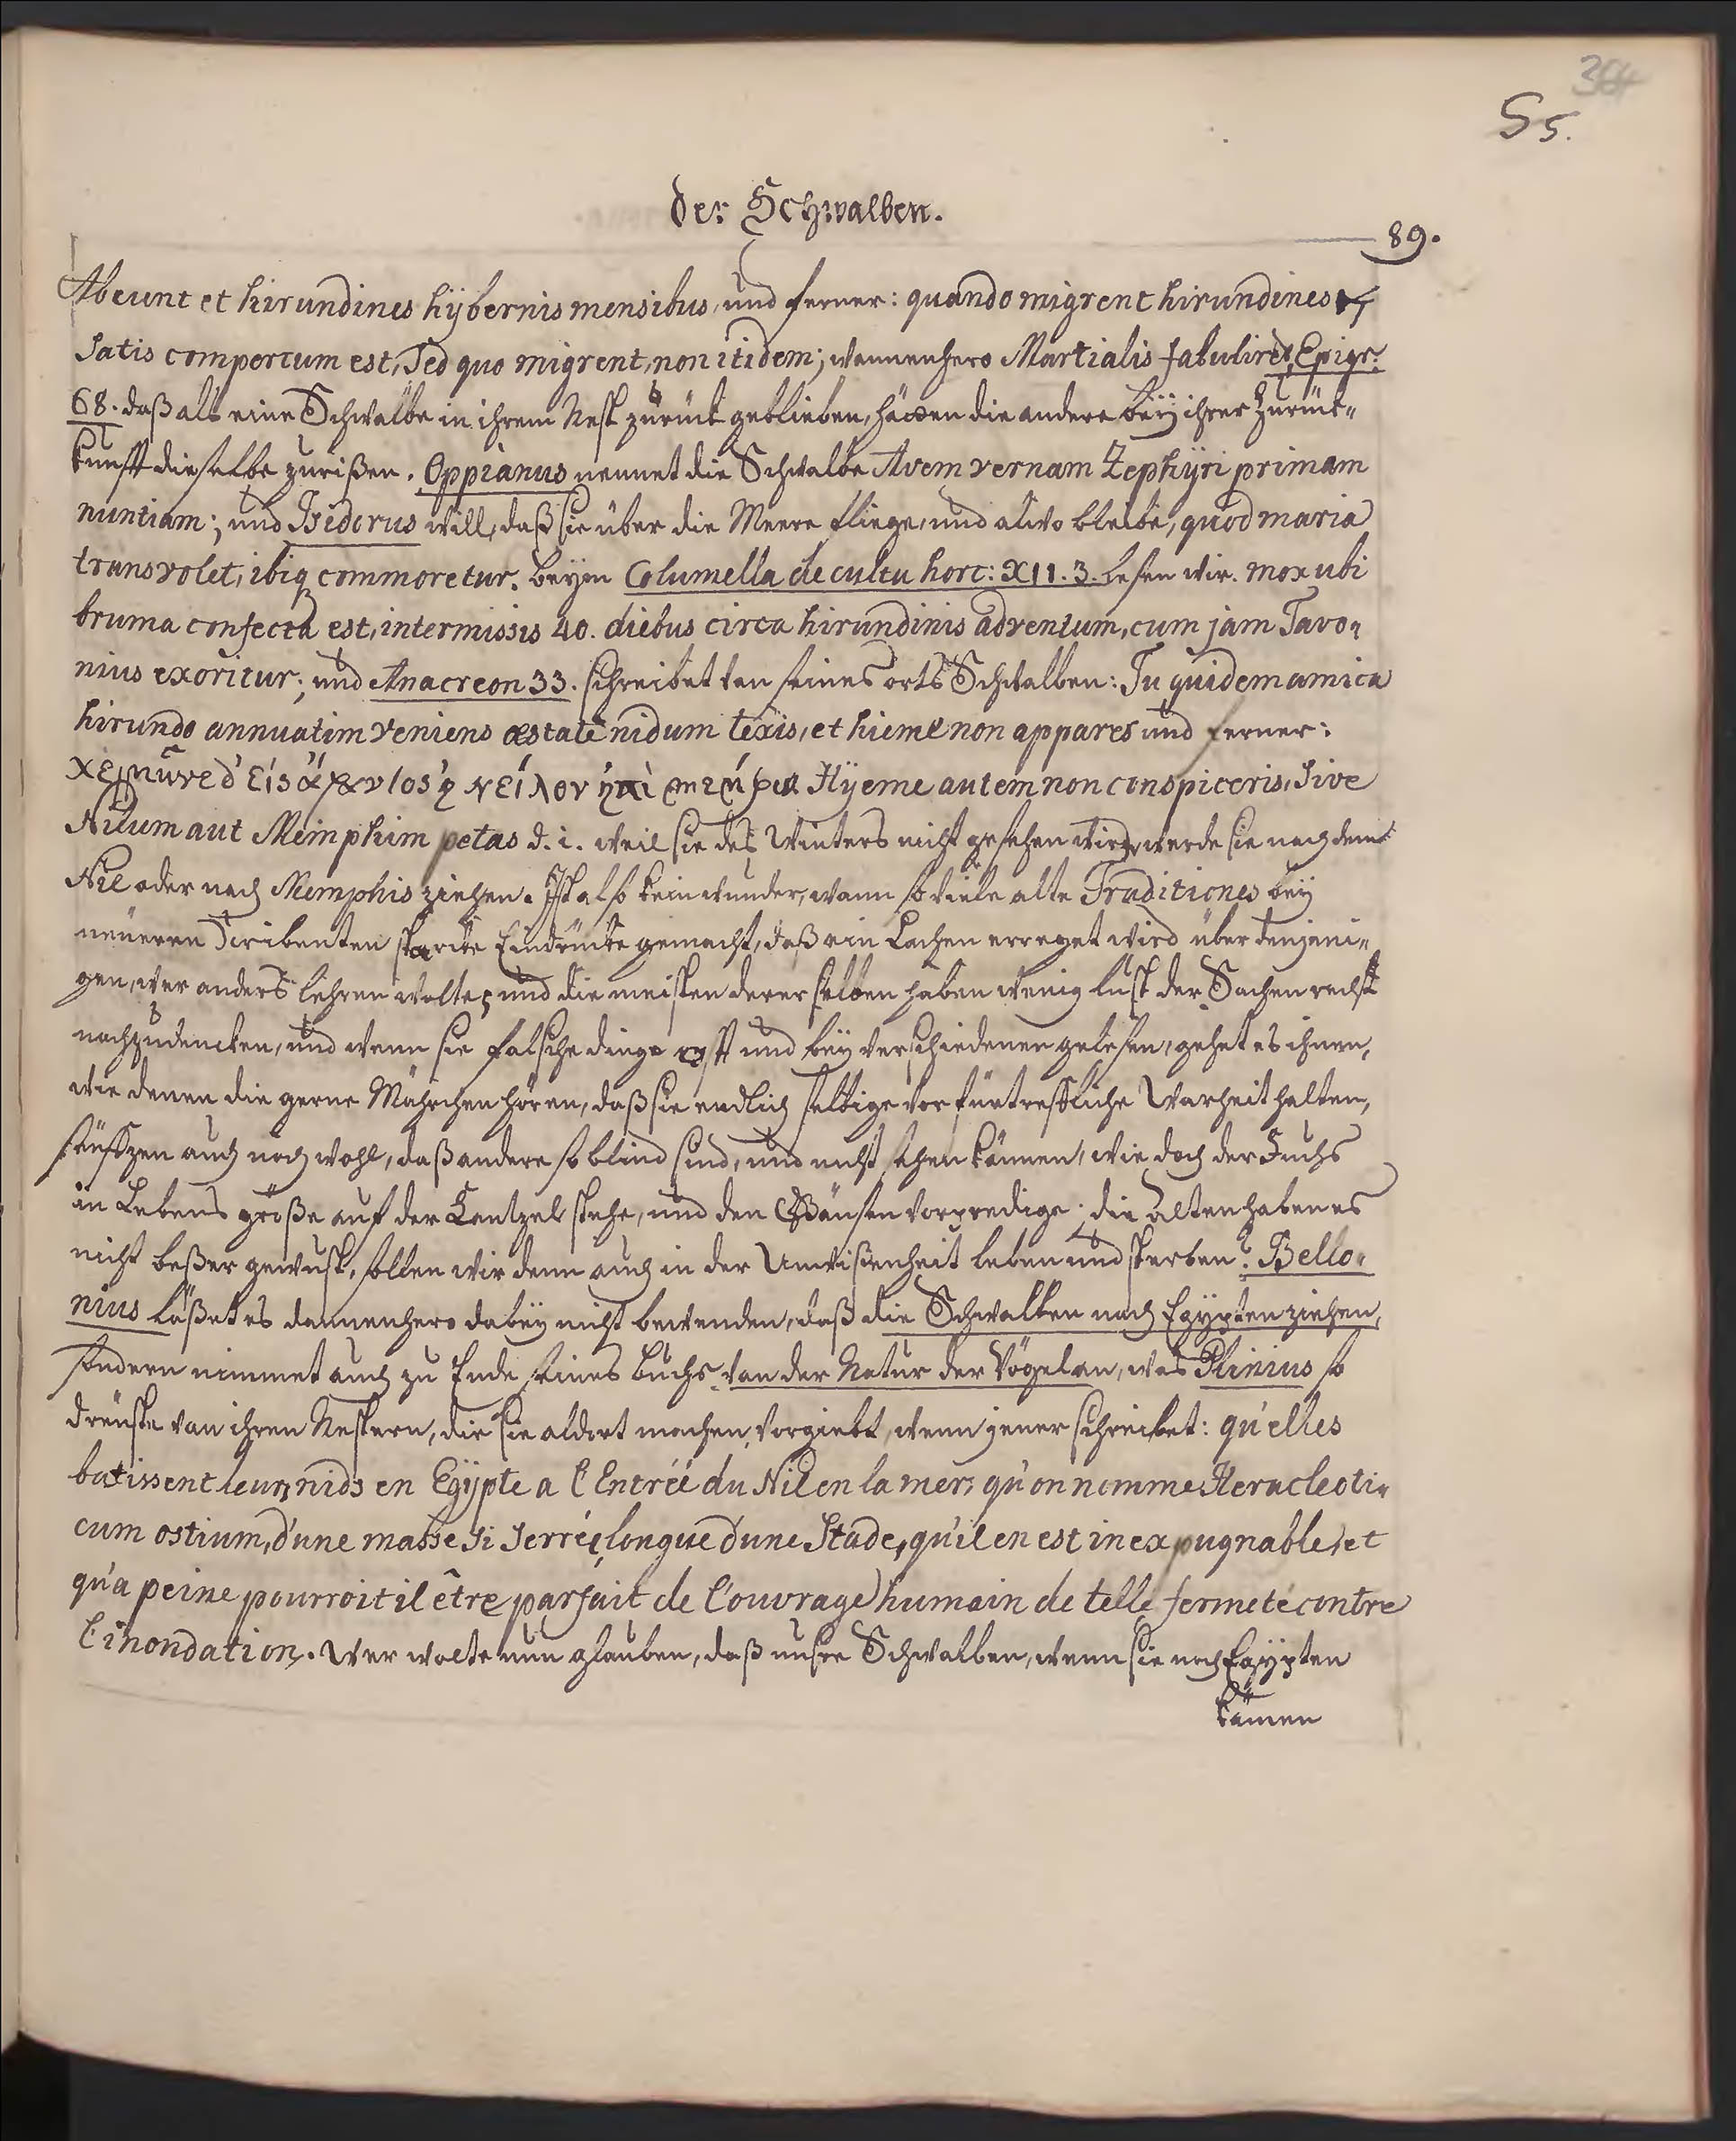 364
S5.
der Schwalben.
89.
Abeunt et hirundines hÿbernis mensibus, und ferner: quando migrent hirundines
Satis compertum est, Sed quo migrent, non itidem; wannenhero Martialis fabuliret, Epigr.
68. daß als eine Schwalbe in ihrem Nest zurück geblieben, hätten die andere beÿ ihrer Zurück-
kunfft dieselbe zurißen. Oppianus nennet die Schwalbe Avem vernam Zephÿri primam
nuntiam; und Isidorus will, daß sie über die Meere fliege, und alwo bleibe, quod maria
transvolet, ibiq commoretur. beÿm Columella de cultu hort: XII. 3. lesen wir. mox ubi
bruma confecta est, intermissis 40. diebus circa hirundinis adventum, cum jam Favo-
nius exoritur; und Anacreon 33. schreibet von seines orts Schwalben: Tu quidem amica
hirundo annuatim veniens æstate nidum texis, et hieme non appares und ferner:
χειμῶνι δ' εἰς ἄφαντος ἢ Νεῖλον ἢ 'πὶ Μέμφιν Hÿeme autem non conspiceris, Sive
Nilum aut Memphim petas d. i. weil sie des Winters nicht gesehen wird, werde sie nach dem
Nil oder nach Memphis ziehen. Ist also kein wunder, wann so viele alte Traditiones beÿ
neueren Scribenten starcke Eindrücke gemacht, daß ein Lachen erreget wird über denjeni-
gen, wer anders lehren wolte; und die meisten derer selben haben wenig lust der Sachen recht
nachzudencken, und wenn sie falsche dinge offt und beÿ verschiedenen gelesen, gehet es ihnen,
wie denen die gerne Mährchen hören, daß sie endlich selbige vor fürtreffliche Warheit halten,
seuffzen auch noch wohl, daß andere so blind sind, und nicht sehen können, wie doch der Fuchs
in Lebens größe auf der Cantzel stehe, und den Gänsen vorpredige. die alten haben es
nicht beßer gewust, sollen wir denn auch in der Unwißenheit leben und sterben? Bello-
nius läßet es dannenhero dabeÿ nicht bewenden, daß die Schwalben nach Egÿpten ziehen,
sondern nimmet auch zu Ende seines buchs von der Natur der Vögel an, was Plinius so
dreuste von ihren Nestern, die sie aldort machen, vorgiebt, wenn jener schreibet: qu'elles
batissent leurs nids en Egÿpte a l'Entrée du Nil en la mer, qu'on nomme Heracleoti-
cum ostium, d'une masse si Serrée, longue d'une Stade, qu'il en est inexpugnable, et
qu'a peine pourroit il être parfait de l'ouvrage humain de telle fermeté contre
l'inondation. Wer wolte nun glauben, daß unsre Schwalben, wenn sie nach Egÿpten
kämen